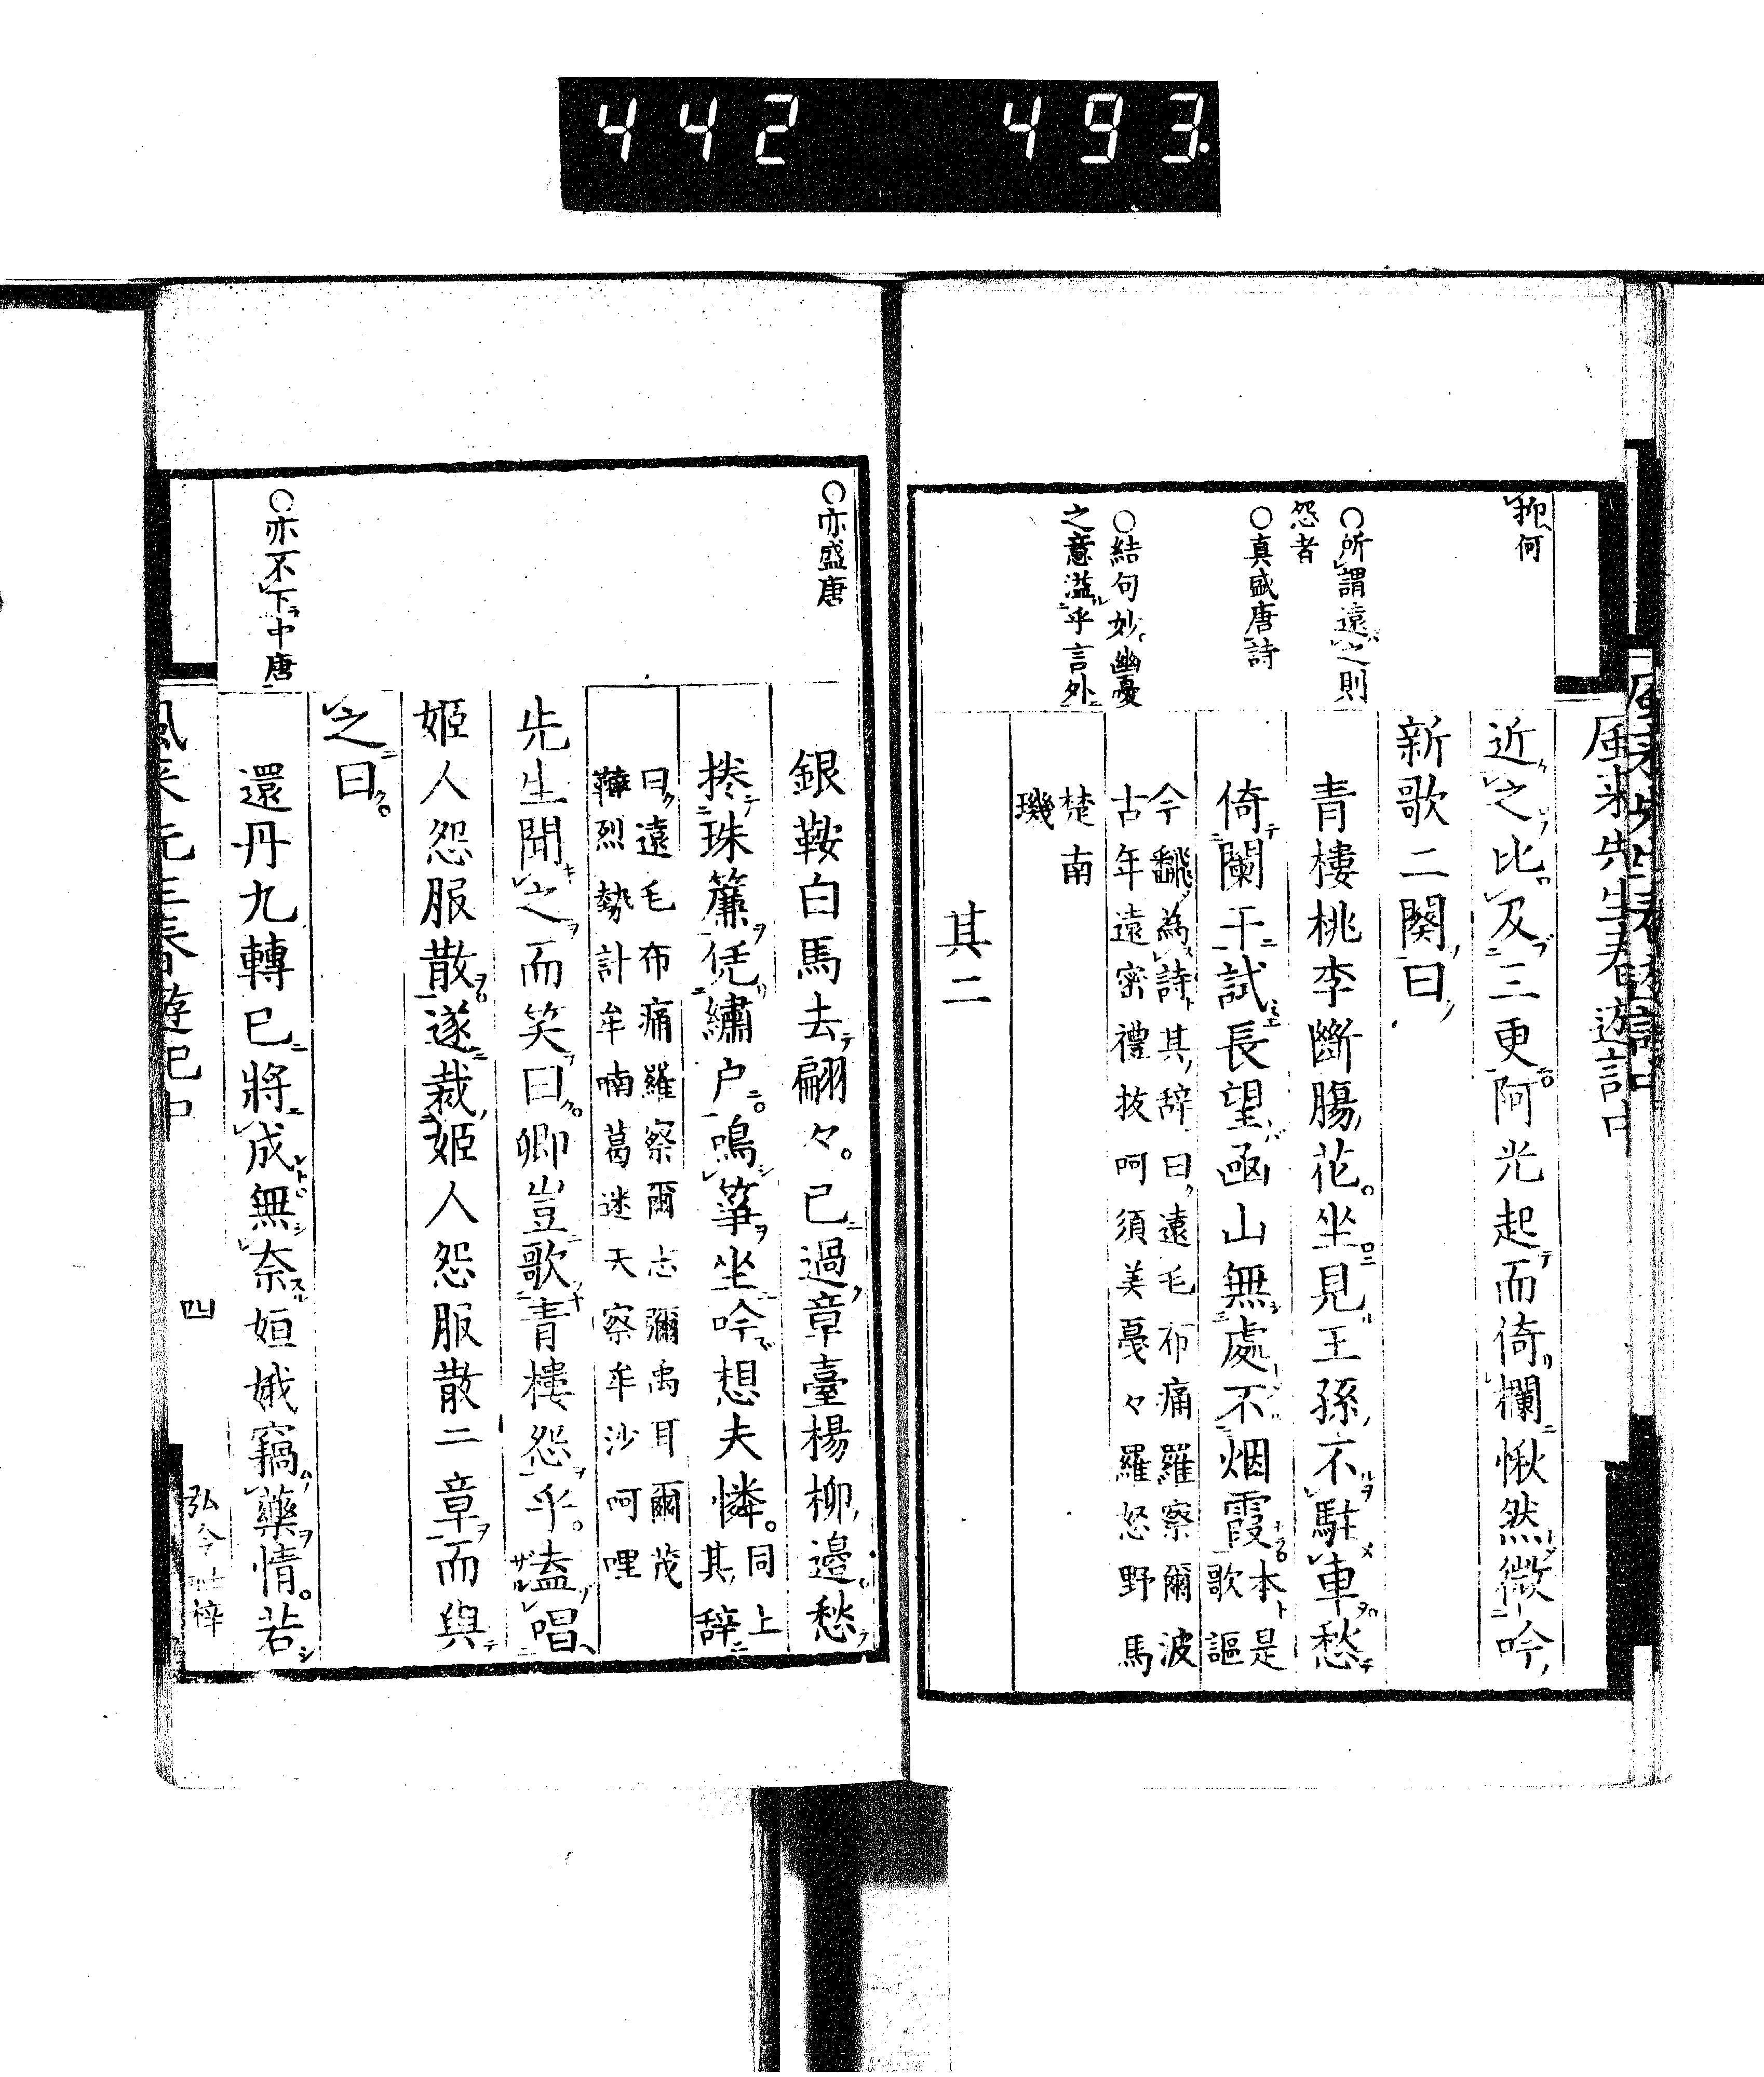 442 493
風来先生春遊記中
抑何
○所謂遠之則
怨者
○真盛唐詩
○結句妙。幽憂
之意溢乎言外
近之比及三更阿光起而倚欄愀然微吟
新歌二闋曰
青樓桃李斷膓花。坐見王孫不駐車愁
倚闌干試長望凾山無處不烟霞
本是
歌謳
今飜為詩其辞曰遠毛布痛羅察爾波
古年遠密禮抜呵須美戞々羅怒野馬
楚南
璣
其二
○亦盛唐
○亦不下中唐
銀鞍白馬去翩々。已過章臺楊柳邉愁
捲珠簾凭繡户。鳴箏坐吟想夫憐。
同上
其辞
曰遠毛布痛羅察爾志彌禹耳爾茂
鞾烈勢計牟喃葛迷天察牟沙呵哩
先生聞之而笑曰。卿豈歌青樓怨乎。盍唱
姬人怨服散。遂裁姬人怨服散二章而與
之曰。
還丹九轉已將成無奈姮娥竊藥情。若
四